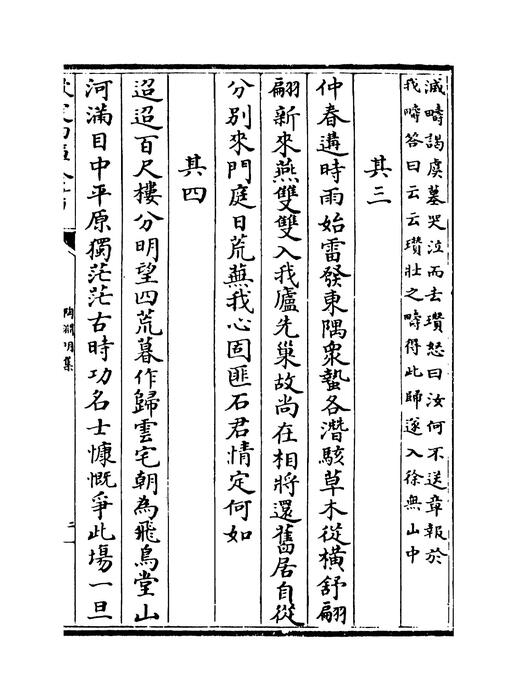 滅疇謁虞墓哭泣而去瓚怒曰汝何不送章報於
我疇答曰云云瓚壯之疇得此歸遂入徐無山中
其三
仲春遘時雨始雷發東隅衆蟄各潛駭草木從橫舒翩
翩新來燕雙雙入我廬先巢故尚在相將還舊居自從
分别來門庭日荒蕪我心固匪石君情定何如
其四
迢迢百尺樓分明望四荒暮作歸雲宅朝為飛鳥堂山
河滿目中平原獨茫茫古時功名士慷慨爭此場一旦
陶淵明集